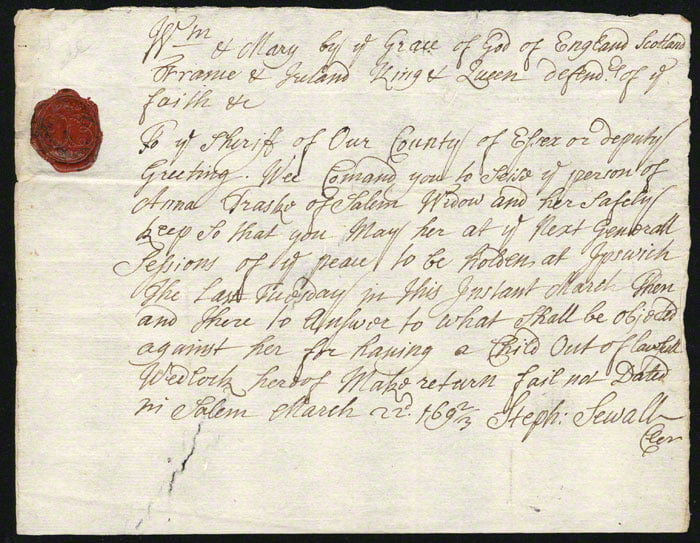 Wm & Mary by ye Grace of God of England Scotland
Ffrance & Ireland King & Queen defendrs of ye
faith &c
To ye Sheriff of Our County of Essex or deputy
Greeting. Wee Comand you to Seise ye person of
Anna Traske of Salem Widow and her Safely
keep So that you May her at ye Next Generall
Sessions of ye peace to be holden at Ipswich
the Last Tuesday in this Instant March Then
and There to Answer to what shall be objected
against her for having a Child Out of lawfull
Wedlock hereof Make return fail not Dated
in Salem March 22d. 1692/3 Steph: Sewall
Cler